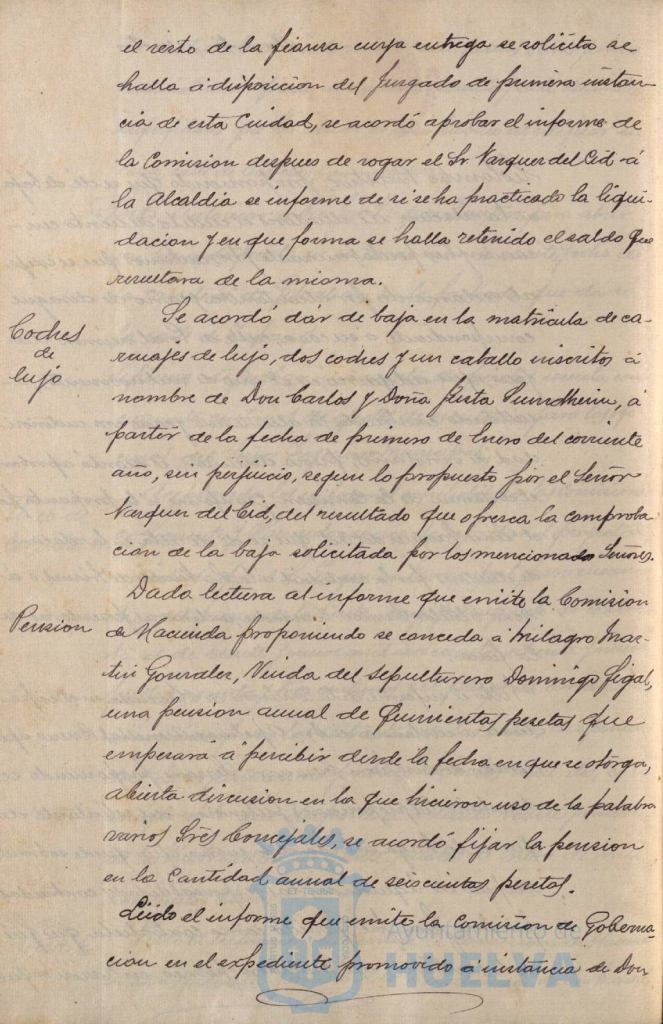 el resto de la fianza cuya entrega se solicita se
halla á disposicion del Juzgado de primera instan-
cia de esta Ciudad, se acordó aprobar el informe de
la Comision despues de rogar el Sr Vazquez del Cid á
la Alcaldia se informe de si se ha practicado la liqui-
dacion y en que forma se halla retenido el saldo que
resultara de la misma.
Coches
de
lujo
Se acordó dár de baja en la matricula de ca-
rruajes de lujo, dos coches y un caballo inscritos á
nombre de Don Carlos y Doña Justa Sundheim, á
partir de la fecha de primero de Enero del corriente
año, sin perjuicio, segun lo propuesto por el Señor
Vazquez del Cid, del resultado que ofresca la comproba
cion de la baja solicitada por los mencionados Señores.
Pension
Dada lectura al informe que emite la Comision
de Hacienda proponiendo se conceda á Milagro Mar-
tin Gonzalez, Viuda del sepulturero Domingo
una pension anual de Quinientas pesetas que
empesará á percibir desde la fecha en que se otorga,
abierta discusion en la que hicieron uso de la palabra
varios Sres Concejales, se acordó fijar la pension
en la Cantidad anual de seiscientas pesetas.
Leido el informe que emite la Comision de Goberna-
cion en el expediente promovido á instancia de Don
Ayuntamiento de
HUELVA